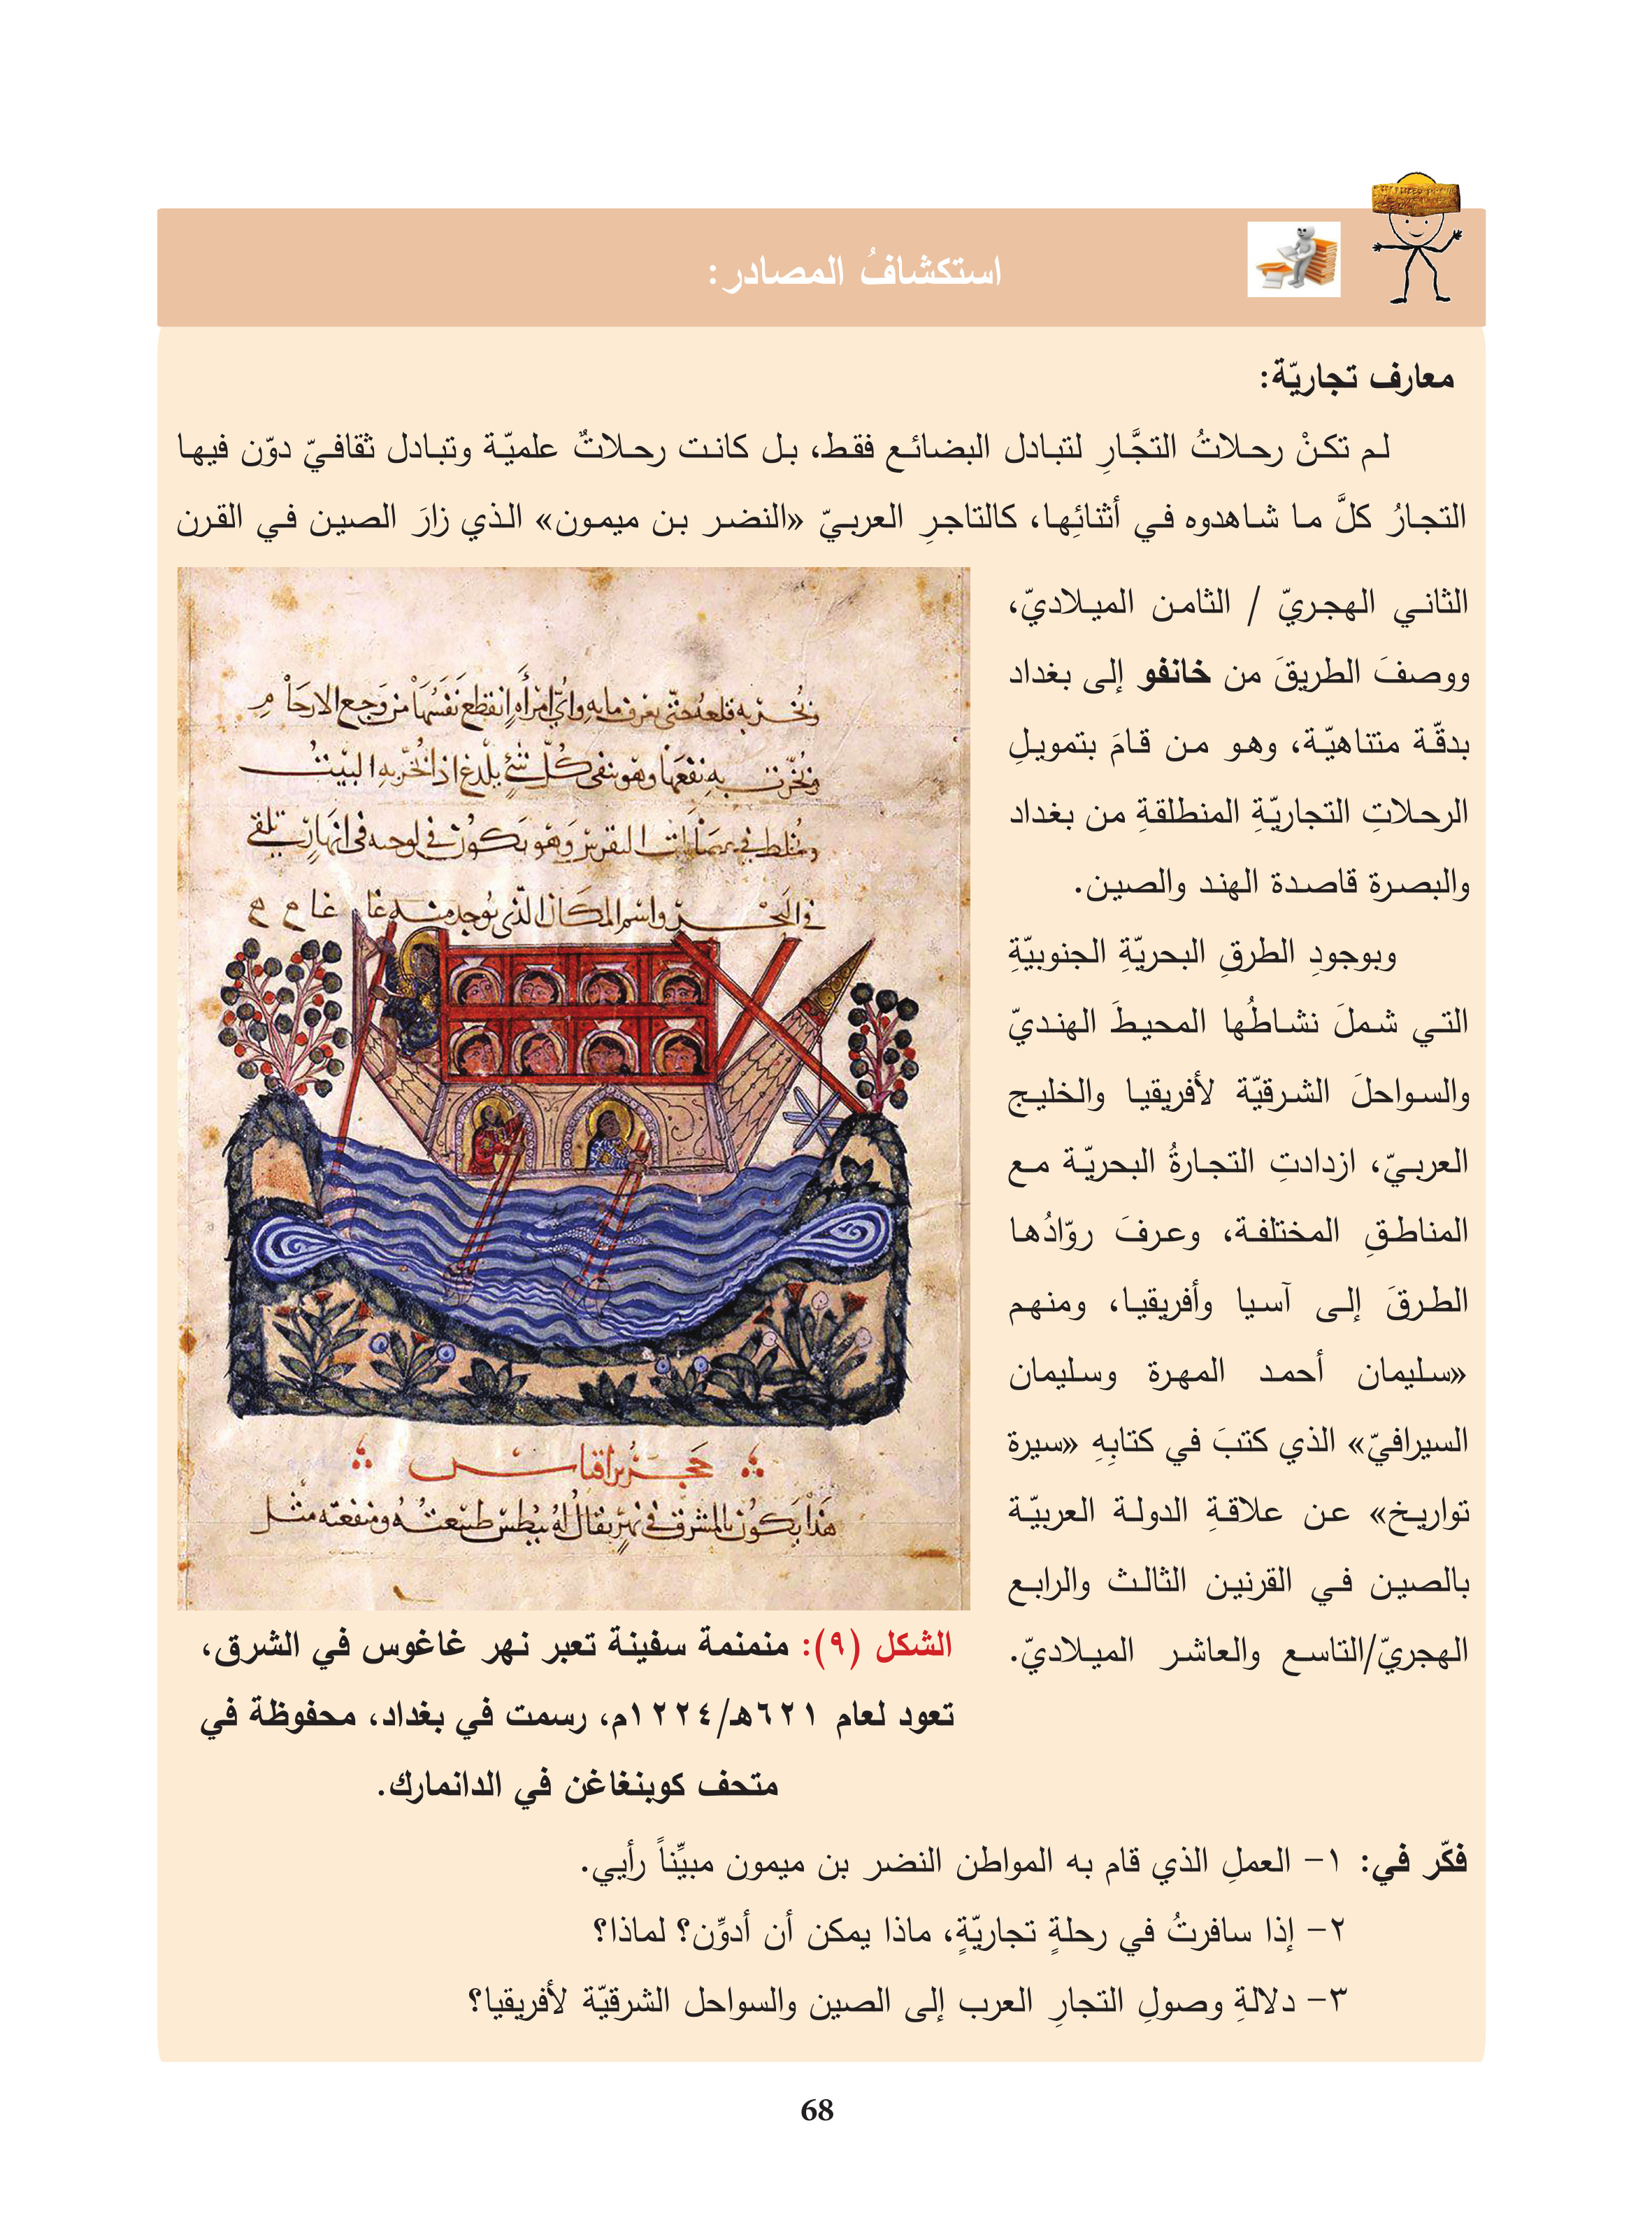 استكشافُ المصادر:
معارف تجاريّة:
لم تكنْ رحلاتُ التجَّارِ لتبادل البضائع فقط، بل كانت رحلاتٌ علميّة وتبادل ثقافيّ دوّن فيها
التجارُ كلَّ ما شاهدوه في أثنائِها، كالتاجرِ العربيّ «النضر بن ميمون» الذي زارَ الصين في القرن
الثاني الهجريّ / الثامن الميلاديّ،
ووصفَ الطريقَ من خانفو إلى بغداد
بدقّة متناهيّة، وهو من قامَ بتمويلِ
الرحلاتِ التجاريّةِ المنطلقةِ من بغداد
والبصرة قاصدة الهند والصين.
وبوجودِ الطرقِ البحريّةِ الجنوبيّةِ
التي شملَ نشاطُها المحيطَ الهنديّ
والسواحلَ الشرقيّة لأفريقيا والخليج
العربيّ، ازدادتِ التجارةُ البحريّة مع
المناطقِ المختلفة، وعرفَ روّادُها
الطرقَ إلى آسيا وأفريقيا، ومنهم
«سليمان أحمد المهرة وسليمان
السيرافيّ» الذي كتبَ في كتابِهِ «سيرة
تواريخ» عن علاقةِ الدولة العربيّة
بالصين في القرنين الثالث والرابع
الهجريّ/التاسع والعاشر الميلاديّ.
هذا يكون بالمشرق في نهر يقال له طبيعته ومنفعته مثل
الشكل (٩): منمنمة سفينة تعبر نهر غاغوس في الشرق،
تعود لعام ٦٢١هـ/١٢٢٤م، رسمت في بغداد، محفوظة في
متحف كوبنغاغن في الدانمارك.
فكّر في: ١- العملِ الذي قام به المواطن النضر بن ميمون مبيِّناً رأيي.
٢- إذا سافرتُ في رحلةٍ تجاريّةٍ، ماذا يمكن أن أدوِّن؟ لماذا؟
٣- دلالةِ وصولِ التجارِ العرب إلى الصين والسواحل الشرقيّة لأفريقيا؟
68